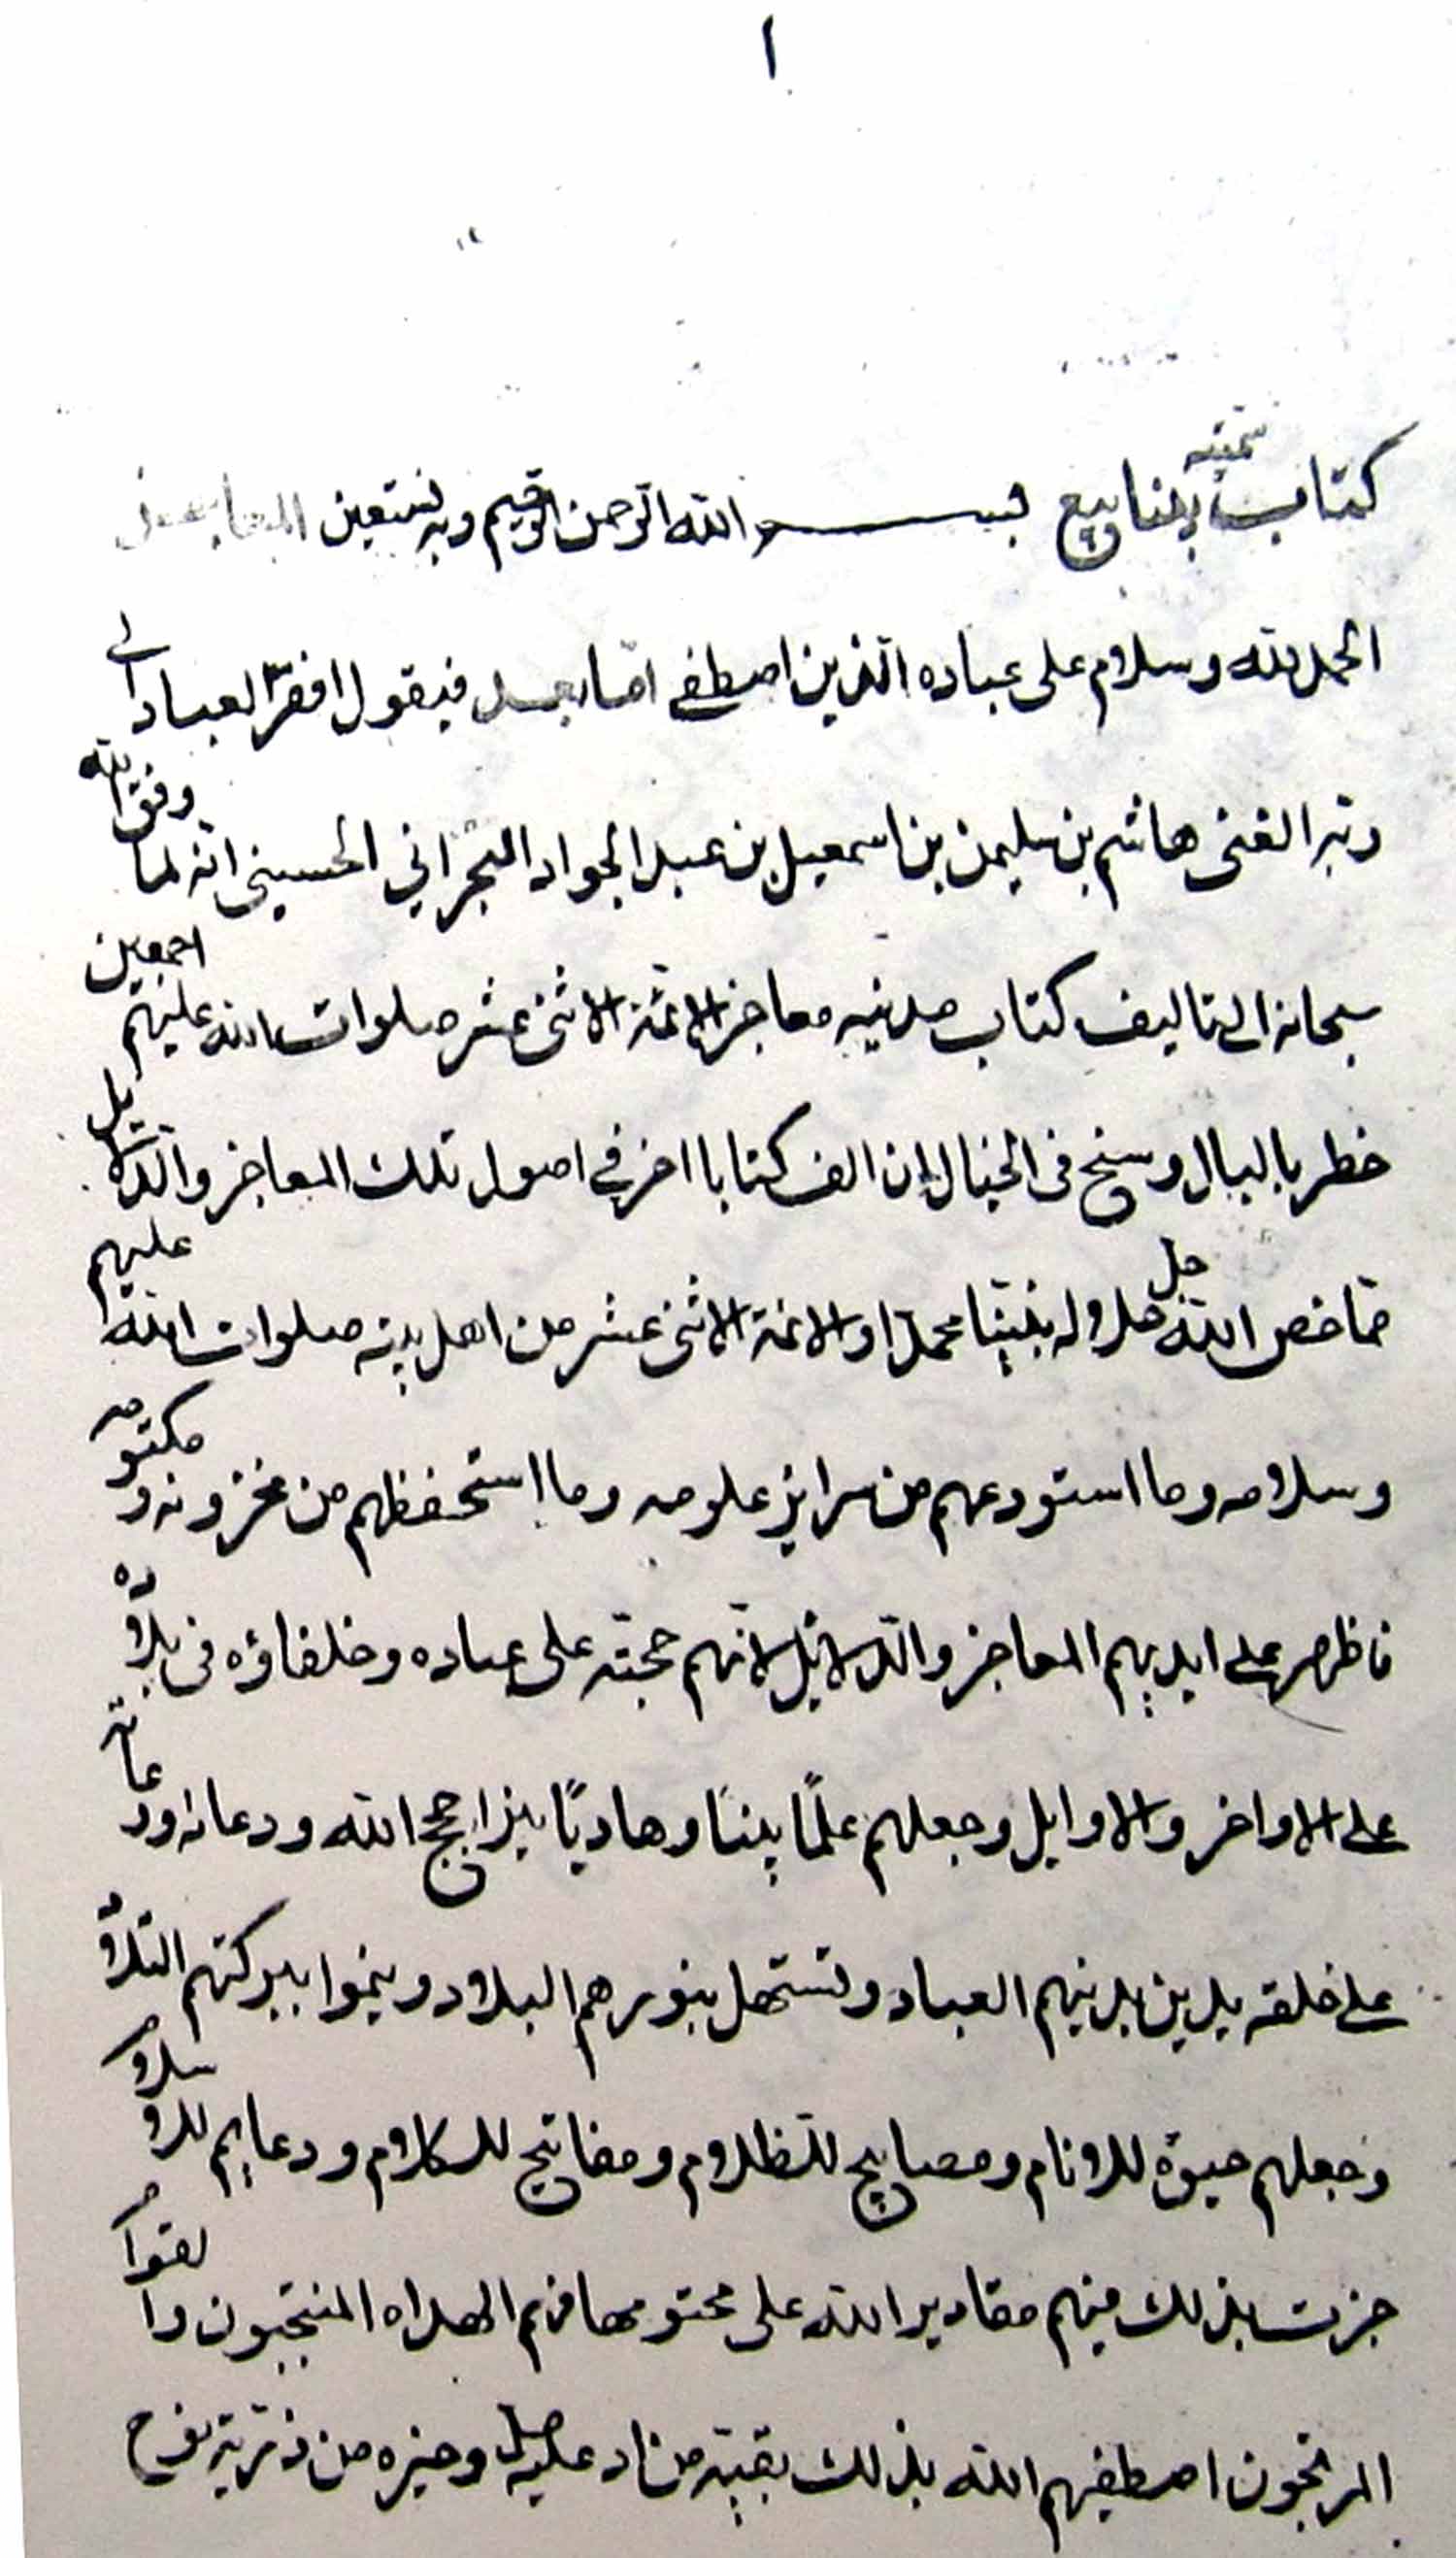 ١
كتاب سميته بينابيع بسم الله الرحمن الرحيم وبه نستعين المعاجز
الحمد لله وسلام على عباده الذين اصطفى اما بعد فيقول افقر العباد الى
ربه الغنى هاشم بن سليمن بن اسمعيل بن عبد الجواد البحراني الحسيني انه لما وفق الله
سبحانه الى تاليف كتاب مدينه معاجز الائمة الاثنى عشر صلوات الله عليهم اجمعين
خطر بالبال وسنح فى الخيال ان الف كتابا اخر في اصول تلك المعاجز والدلايل
مما خص الله جل جلاوله نبيّنا محمدا والائمة الاثنى عشر من اهل بيته صلوات الله عليهم
وسلامه وما استودعهم من سراير علومه وما استحفظهم من مخزونه ومكتومه
فاظهر على ايديهم المعاجز والدلائل لانهم حجته على عباده وخلفاؤه فى بلاده
على الاواخر والاوايل وجعلهم علمًا بينًا وهاديًا نيرا حجج الله ودعاته ورعاته
على خلقه يدين بدينهم العباد وتستهل بنورهم البلاد وينموا ببركتهم التلاد
وجعلهم حيوة للانام ومصابيح للظلام ومفاتيح للكلام ودعايم للاسلام
جرت بذلك فيهم مقادير الله على محتومها فهم الهداه المنتجبون والقوام
المرتجون اصطفيهم الله بذلك بقية من ادم عليه وخيره من ذرية نوح